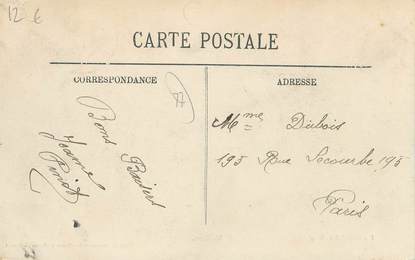 12 €
CARTE POSTALE
CORRESPONDANCE
ADRESSE
Bons Baisers
Jeanne
Mme Dubois
195 Rue Lecourbe 195
Paris